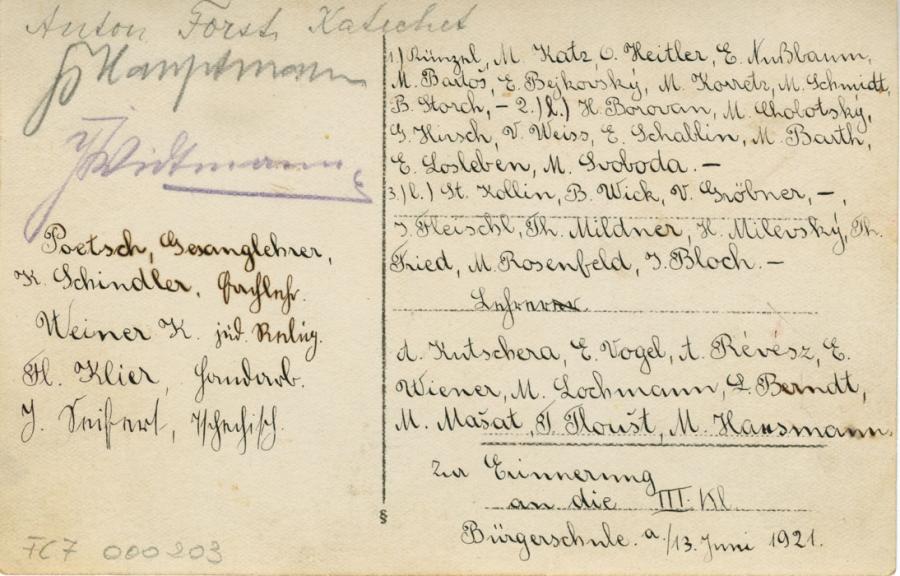 Anton Forst, Katechet
Hauptmann
Widtmann
Poetsch, Gesanglehrer,
K. Schindler, Fachlehr.
Weiner K. jüd. Relig.
Fl. Klier, Handarb.
J. Seifert, Tschechisch.
FC7 000203
1.) Künzel, M. Katz, O. Heitler, E. Nußbaum,
M. Bartoš, E. Bejkovský, M. Korretz, M. Schmidt,
B. Storch, – 2.) l.) H. Borovan, M. Cholotský,
G. Hirsch, V. Weiss, E. Schablin, M. Barth,
E. Losleben, M. Svoboda. –
3.) l.) St. Kollin, B. Wick, V. Gröbner, –,
J. Fleischl, Th. Mildner, H. Milevský, Th.
Fried, M. Rosenfeld, J. Bloch. –
Lehrer
A. Kutschera, E. Vogel, A. Révész, E.
Wiener, M. Lochmann, L. Berndt,
M. Mašat, T. Ploušt, M. Hausmann.
Zur Erinnerung
an die III. Kl
§
Bürgerschule. a./13. Juni 1921.